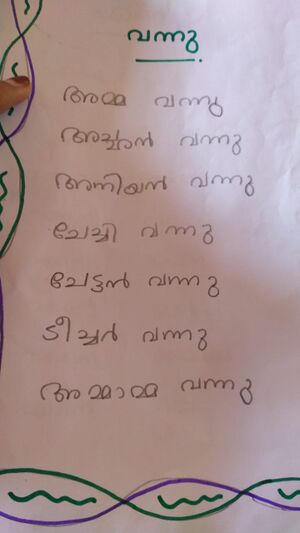 വന്നു
അമ്മ വന്നു
അച്ഛൻ വന്നു
അനിയൻ വന്നു
ചേച്ചി വന്നു
ചേട്ടൻ വന്നു
ടീച്ചർ വന്നു
അമ്മാമ്മ വന്നു